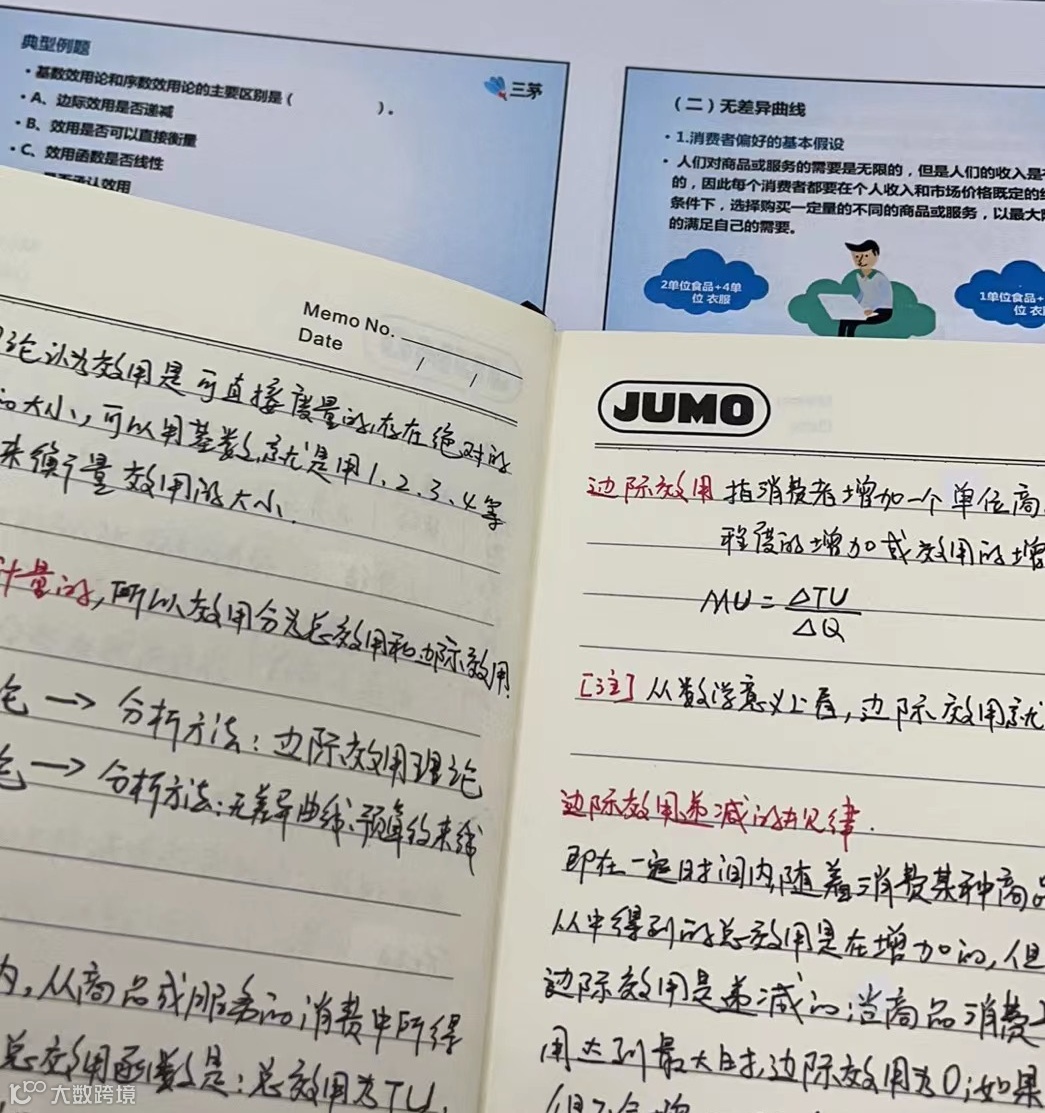 典型例题
三茅
• 基数效用论和序数效用论的主要区别是（ ）。
• A、边际效用是否递减
• B、效用是否可以直接衡量
• C、效用函数是否线性
是否承认效用
（二）无差异曲线
• 1.消费者偏好的基本假设
• 人们对商品或服务的需要是无限的，但是人们的收入是
的，因此每个消费者都要在个人收入和市场价格既定的
条件下，选择购买一定量的不同的商品或服务，以最大
的满足自己的需要。
2单位食品+4单
位 衣服
1单位食品+
位 衣
Memo No.
Date / /
论认为效用是可直接度量的,存在绝对的
大小,可以用基数,就是用1、2、3、4等
来衡量效用的大小.
计量的,所以效用分为总效用和边际效用.
论 → 分析方法:边际效用理论
论 → 分析方法:无差异曲线、预算约束线
内,从商品或服务的消费中所得
总效用函数是:总效用为TU,
JUMO
边际效用 指消费者增加一个单位商
程度的增加或效用的增
MU = ΔTU
ΔQ
[注] 从数学意义上看,边际效用就
边际效用递减的规律.
即在一定时间内,随着消费某种商品
从中得到的总效用是在增加的,但
边际效用是递减的;当商品消费
用达到最大时,边际效用为0;如果
大数跨境